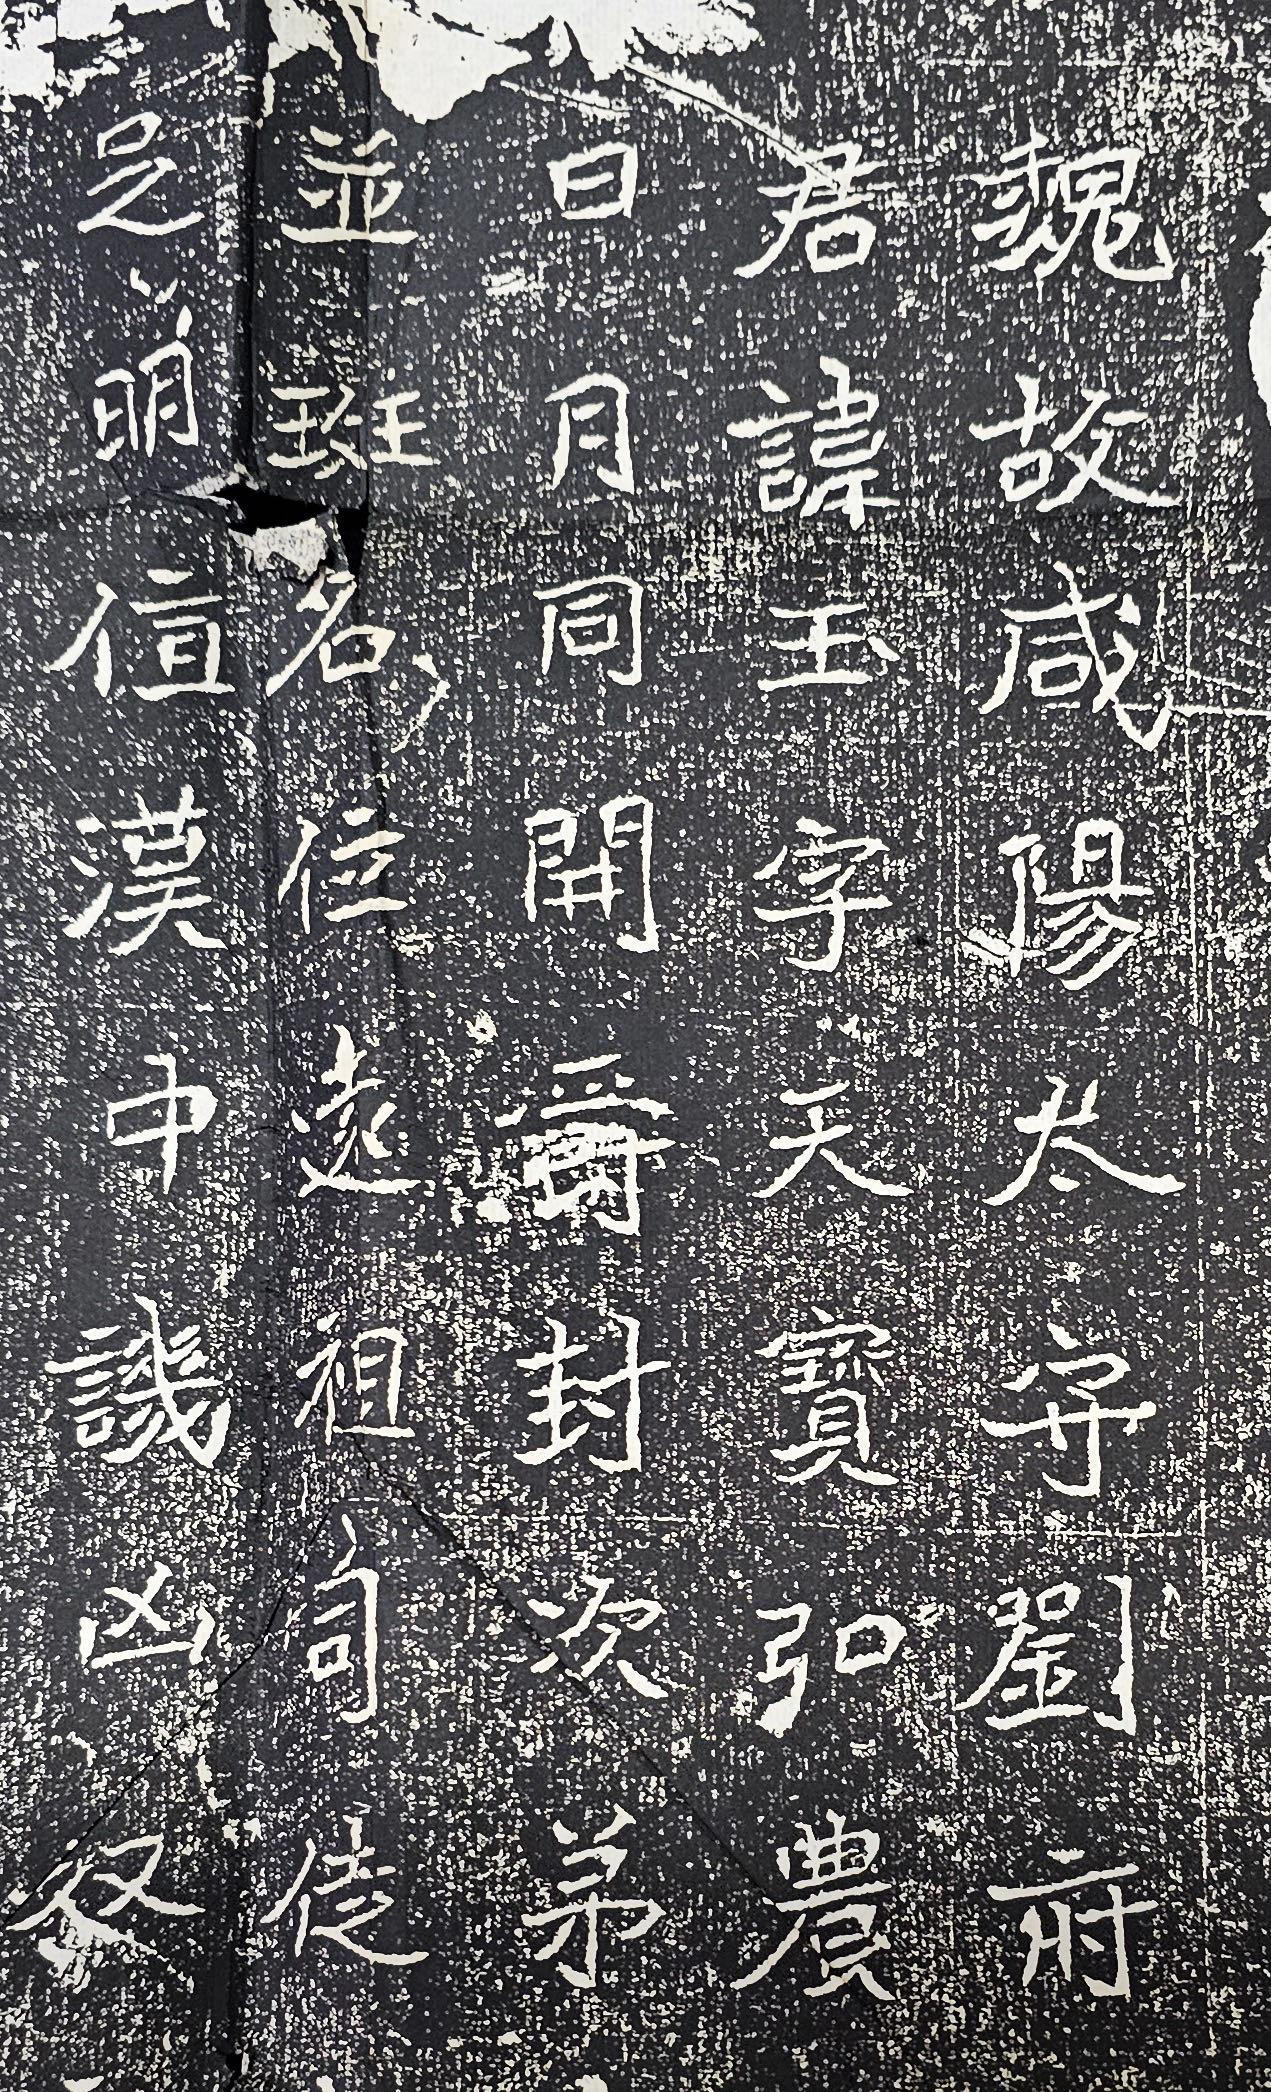 魏故咸陽太守劉府
君諱玉字天寶弘農
日月同開爵封次弟
並班名位遠祖司徒
明值漢中譏凶奴